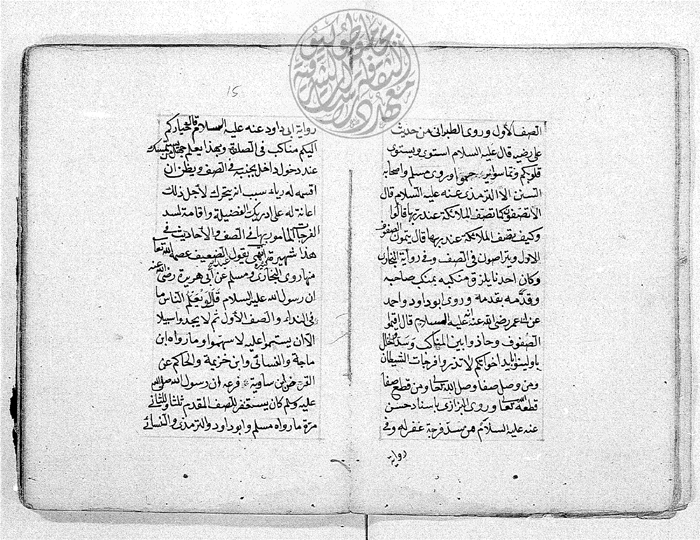 الصف الأول وروى الطبراني من حديث
علي رضيه قال عليه السلام استووا ويستوى
قلوبكم وتماسوا تراحموا وروى مسلم واصحاب
السنن الا الترمذي عنه عليه السلام قال
الا تصفون كما تصف الملائكة عند ربها قالوا
وكيف تصف الملائكة عند ربها قال يتمون الصفوف
الاول ويتراصون في الصف وفي رواية البخاري
وكان احدنا يلزق منكبه بمنكب صاحبه
وقدمه بقدمه وروى ابو داود واحمد
عن عمر رضي الله عنه عليه السلام قال اقيموا
الصفوف وحاذوا بين المناكب وسدوا الخلل
ولينوا بايد اخوانكم لا تذروا فرجات الشيطان
ومن وصل صفا وصل الله تعا ومن قطع صفا
قطعه الله تعا وروى البزازي باسناد حسن
عنه عليه السلام من سد فرجة غفر له وفي
رواية
15
رواية ابي داود عنه عليه السلام قال خياركم
الينكم مناكب في الصلوة وبهذا يعلم جهل من يستمسك
عند دخول داخل بجنبه في الصف ويظن ان
افسحه له رياء بسبب انه يتحرك لاجل ذلك
اعانة له على ادراك الفضيلة واقامة لسد
الفرجات المامور بها في الصف والاحاديث في
هذا شهيرة انتهى يقول الضعيف عصمه الله تعا
منها روى البخاري ومسلم عن ابي هريرة رضي الله عنه
ان رسول الله عليه السلام قال لو يعلم الناس ما
في النداء والصف الأول ثم لا يجدوا سبيلا
الا ان يستهموا عليه لاستهموا وما رواه ابن
ماجة والنسائي وابن خزيمة والحاكم عن
العرض بن سارية ان رسول الله صلى الله
عليه وسلم كان يستغفر للصف المقدم ثلثا وللثاني
مرة ما رواه مسلم وابو داود والترمذي والنسائي